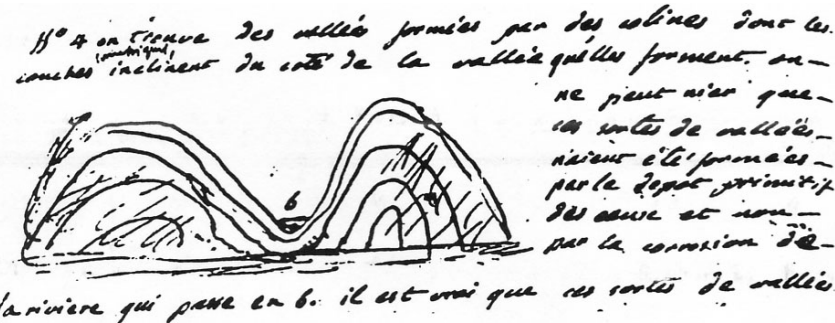 N° 4 on trouve des vallées formées par des colines dont les
couches inclinent du coté de la vallée qu'elles forment. on
ne peut nier que
ces sortes de vallées
n'aient été formées
par le depot primitif
des eaux et non
par la corrosion de
6
la riviere qui passe en 6. il est vrai que ces sortes de vallées